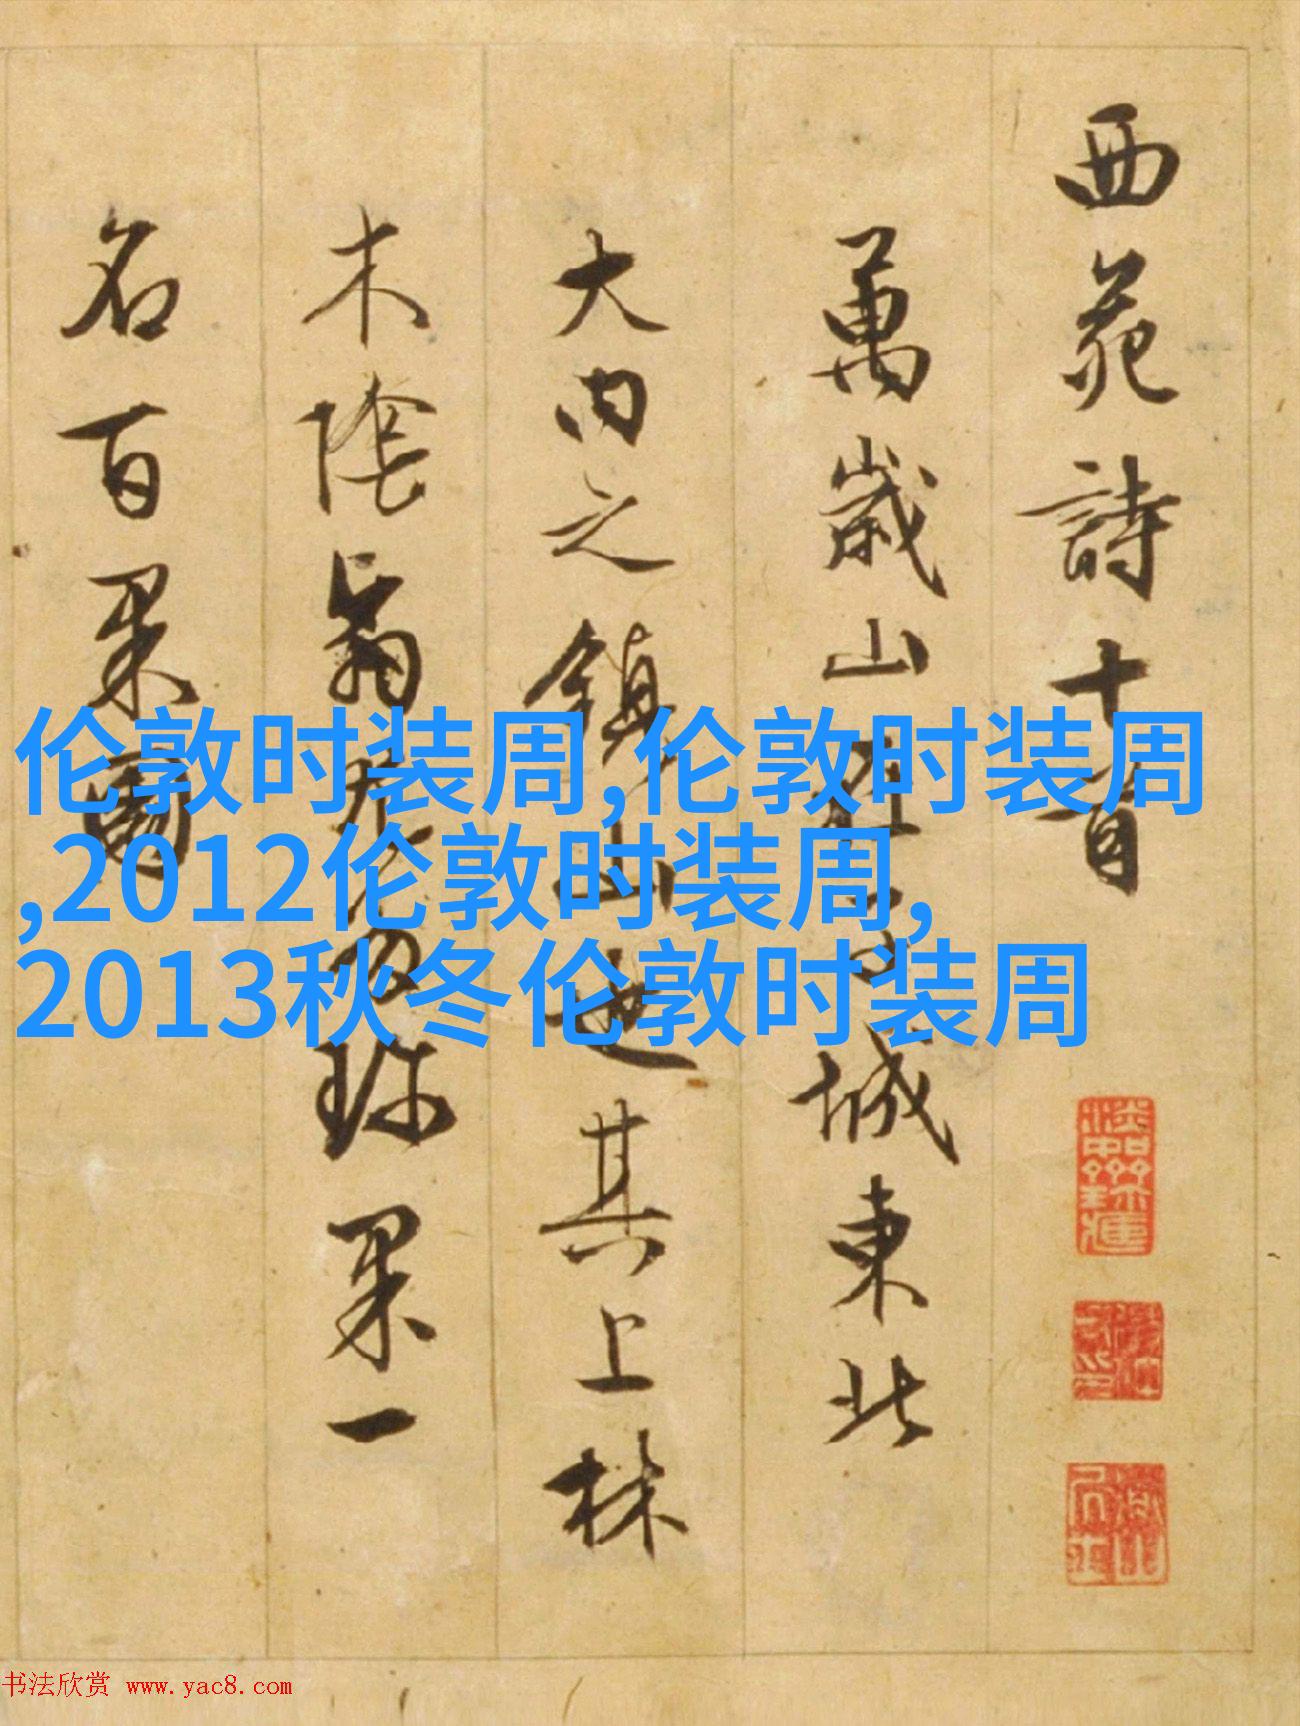 西苑詩十首
萬歲山在子城東北
大内之鎮山也其上林
木陰翳尤多珍果一
名百果園
伦敦时装周,伦敦时装周
,2012伦敦时装周,
2013秋冬伦敦时装周
书法欣赏 www.yac8.com